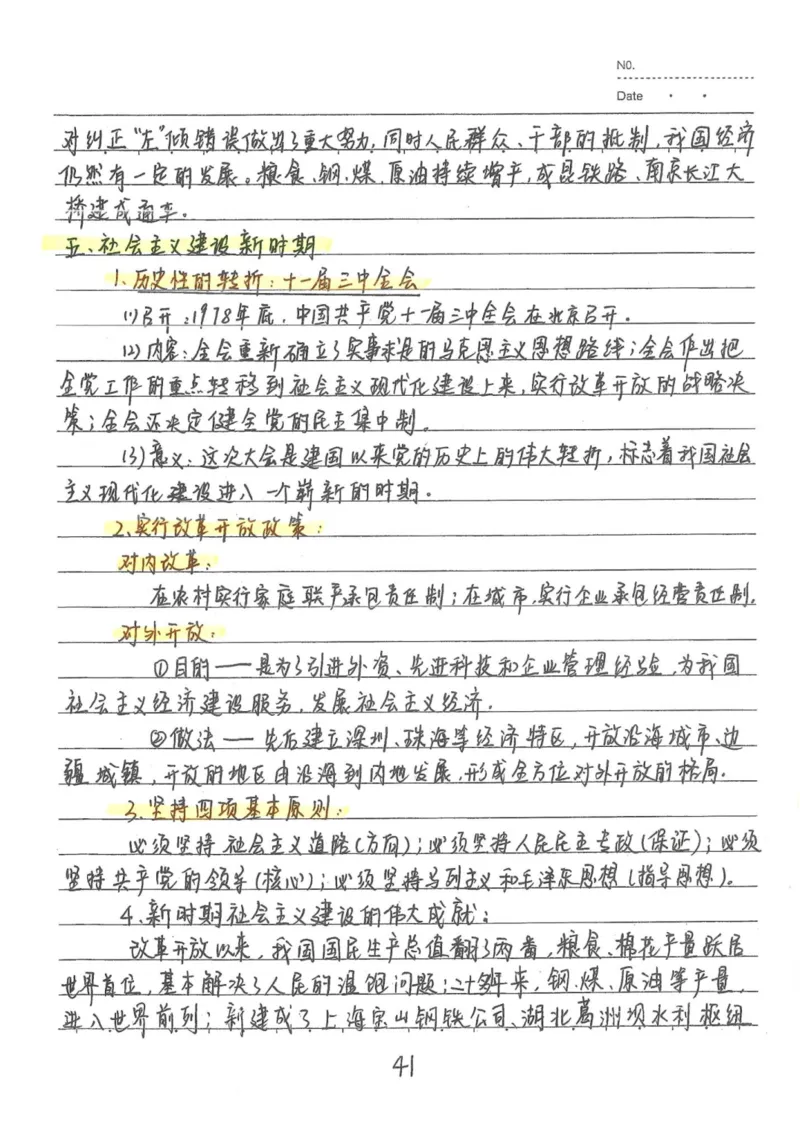 NO.
Date
对纠正“左”倾错误做出了重大努力,同时人民群众、干部的抵制,我国经济
仍然有一定的发展。粮食、钢、煤、原油持续增产,成昆铁路、南京长江大
桥建成通车。
五、社会主义建设新时期
1.历史性的转折:十一届三中全会
(1)召开:1978年底,中国共产党十一届三中全会在北京召开。
(2)内容:全会重新确立了实事求是的马克思主义思想路线;全会作出把
全党工作的重点转移到社会主义现代化建设上来,实行改革开放的战略决
策;全会还决定健全党的民主集中制。
(3)意义:这次大会是建国以来党的历史上的伟大转折,标志着我国社会
主义现代化建设进入一个崭新的时期。
2.实行改革开放政策:
对内改革:
在农村实行家庭联产承包责任制;在城市,实行企业承包经营责任制.
对外开放:
①目的——是为了引进外资、先进科技和企业管理经验,为我国
社会主义经济建设服务,发展社会主义经济.
②做法——先后建立深圳、珠海等经济特区,开放沿海城市、边
疆城镇,开放的地区由沿海到内地发展,形成全方位对外开放的格局.
3.坚持四项基本原则:
必须坚持社会主义道路(方向);必须坚持人民民主专政(保证);必须
坚持共产党的领导(核心);必须坚持马列主义和毛泽东思想(指导思想)。
4.新时期社会主义建设的伟大成就:
改革开放以来,我国国民生产总值翻了两番,粮食、棉花产量跃居
世界首位,基本解决了人民的温饱问题;二十多年来,钢、煤、原油等产量,
进入世界前列;新建成了上海宝山钢铁公司、湖北葛洲坝水利枢纽
41